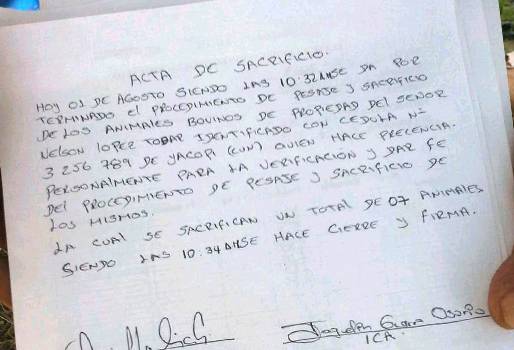 ACTA DE SACRIFICIO.
HOY 01 DE AGOSTO SIENDO LAS 10:32AM SE DA POR
TERMINADO EL PROCEDIMIENTO DE PESAJE Y SACRIFICIO
DE LOS ANIMALES BOVINOS DE PROPIEDAD DEL SEÑOR
NELSON LOPEZ TOBAR IDENTIFICADO CON CEDULA Nº
3 256 789 DE YACOPI (CUN) QUIEN HACE PRECENCIA.
PERSONALMENTE PARA LA VERIFICACIÓN Y DAR FE
DEL PROCEDIMIENTO DE PESAJE Y SACRIFICIO DE
LOS MISMOS.
LA CUAL SE SACRIFICAN UN TOTAL DE 07 ANIMALES
SIENDO LAS 10:34 AM SE HACE CIERRE Y FIRMA.
Osorio
ICA.